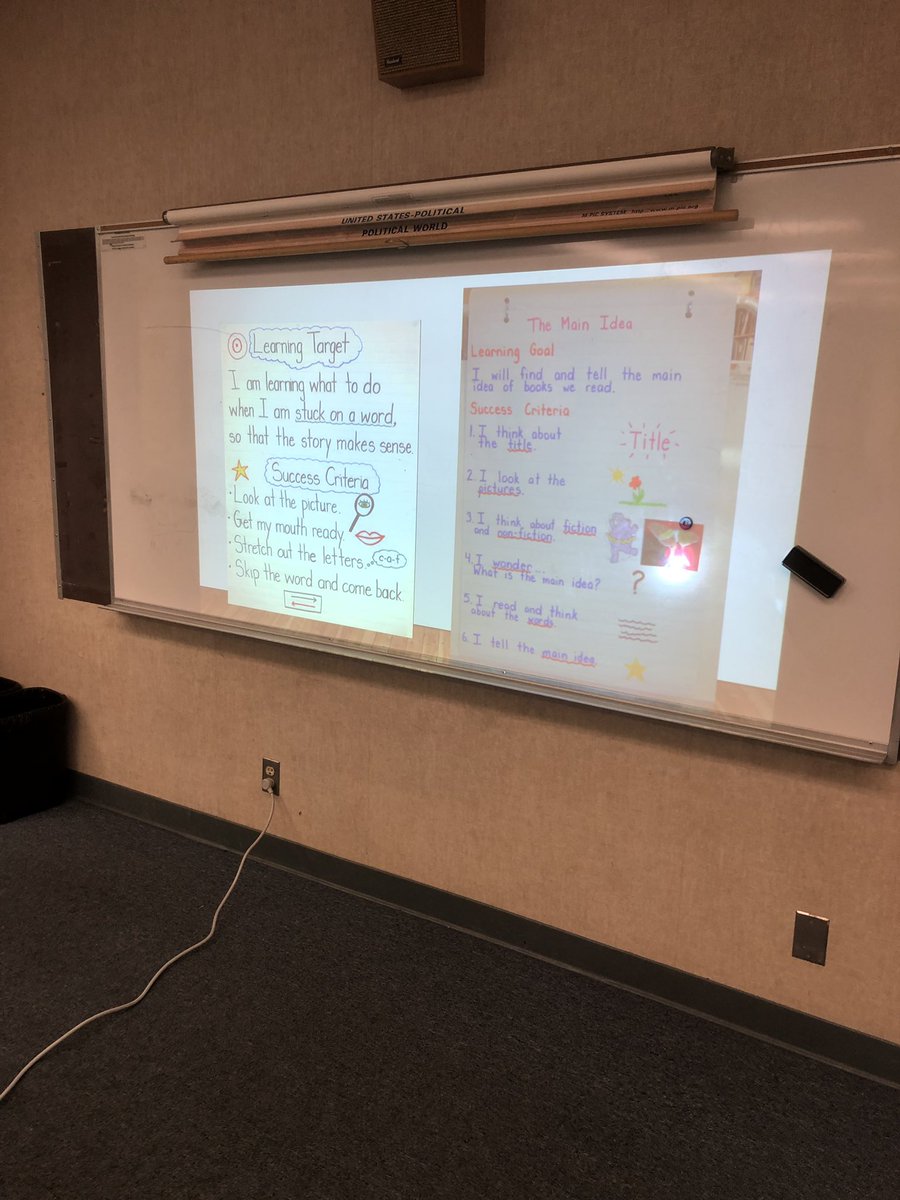 UNITED STATES-POLITICAL
POLITICAL WORLD
Learning Target
I am learning what to do
when I am stuck on a word,
so that the story makes sense.
Success Criteria
• Look at the picture.
• Get my mouth ready.
• Stretch out the letters.
c-a-t
• Skip the word and come back.
The Main Idea
Learning Goal
I will find and tell the main
idea of books we read.
Success Criteria
1. I think about
the title.
Title
2. I look at the
pictures.
3. I think about fiction
and non-fiction.
4. I wonder...
What is the main idea?
?
5. I read and think
about the words.
6. I tell the main idea.